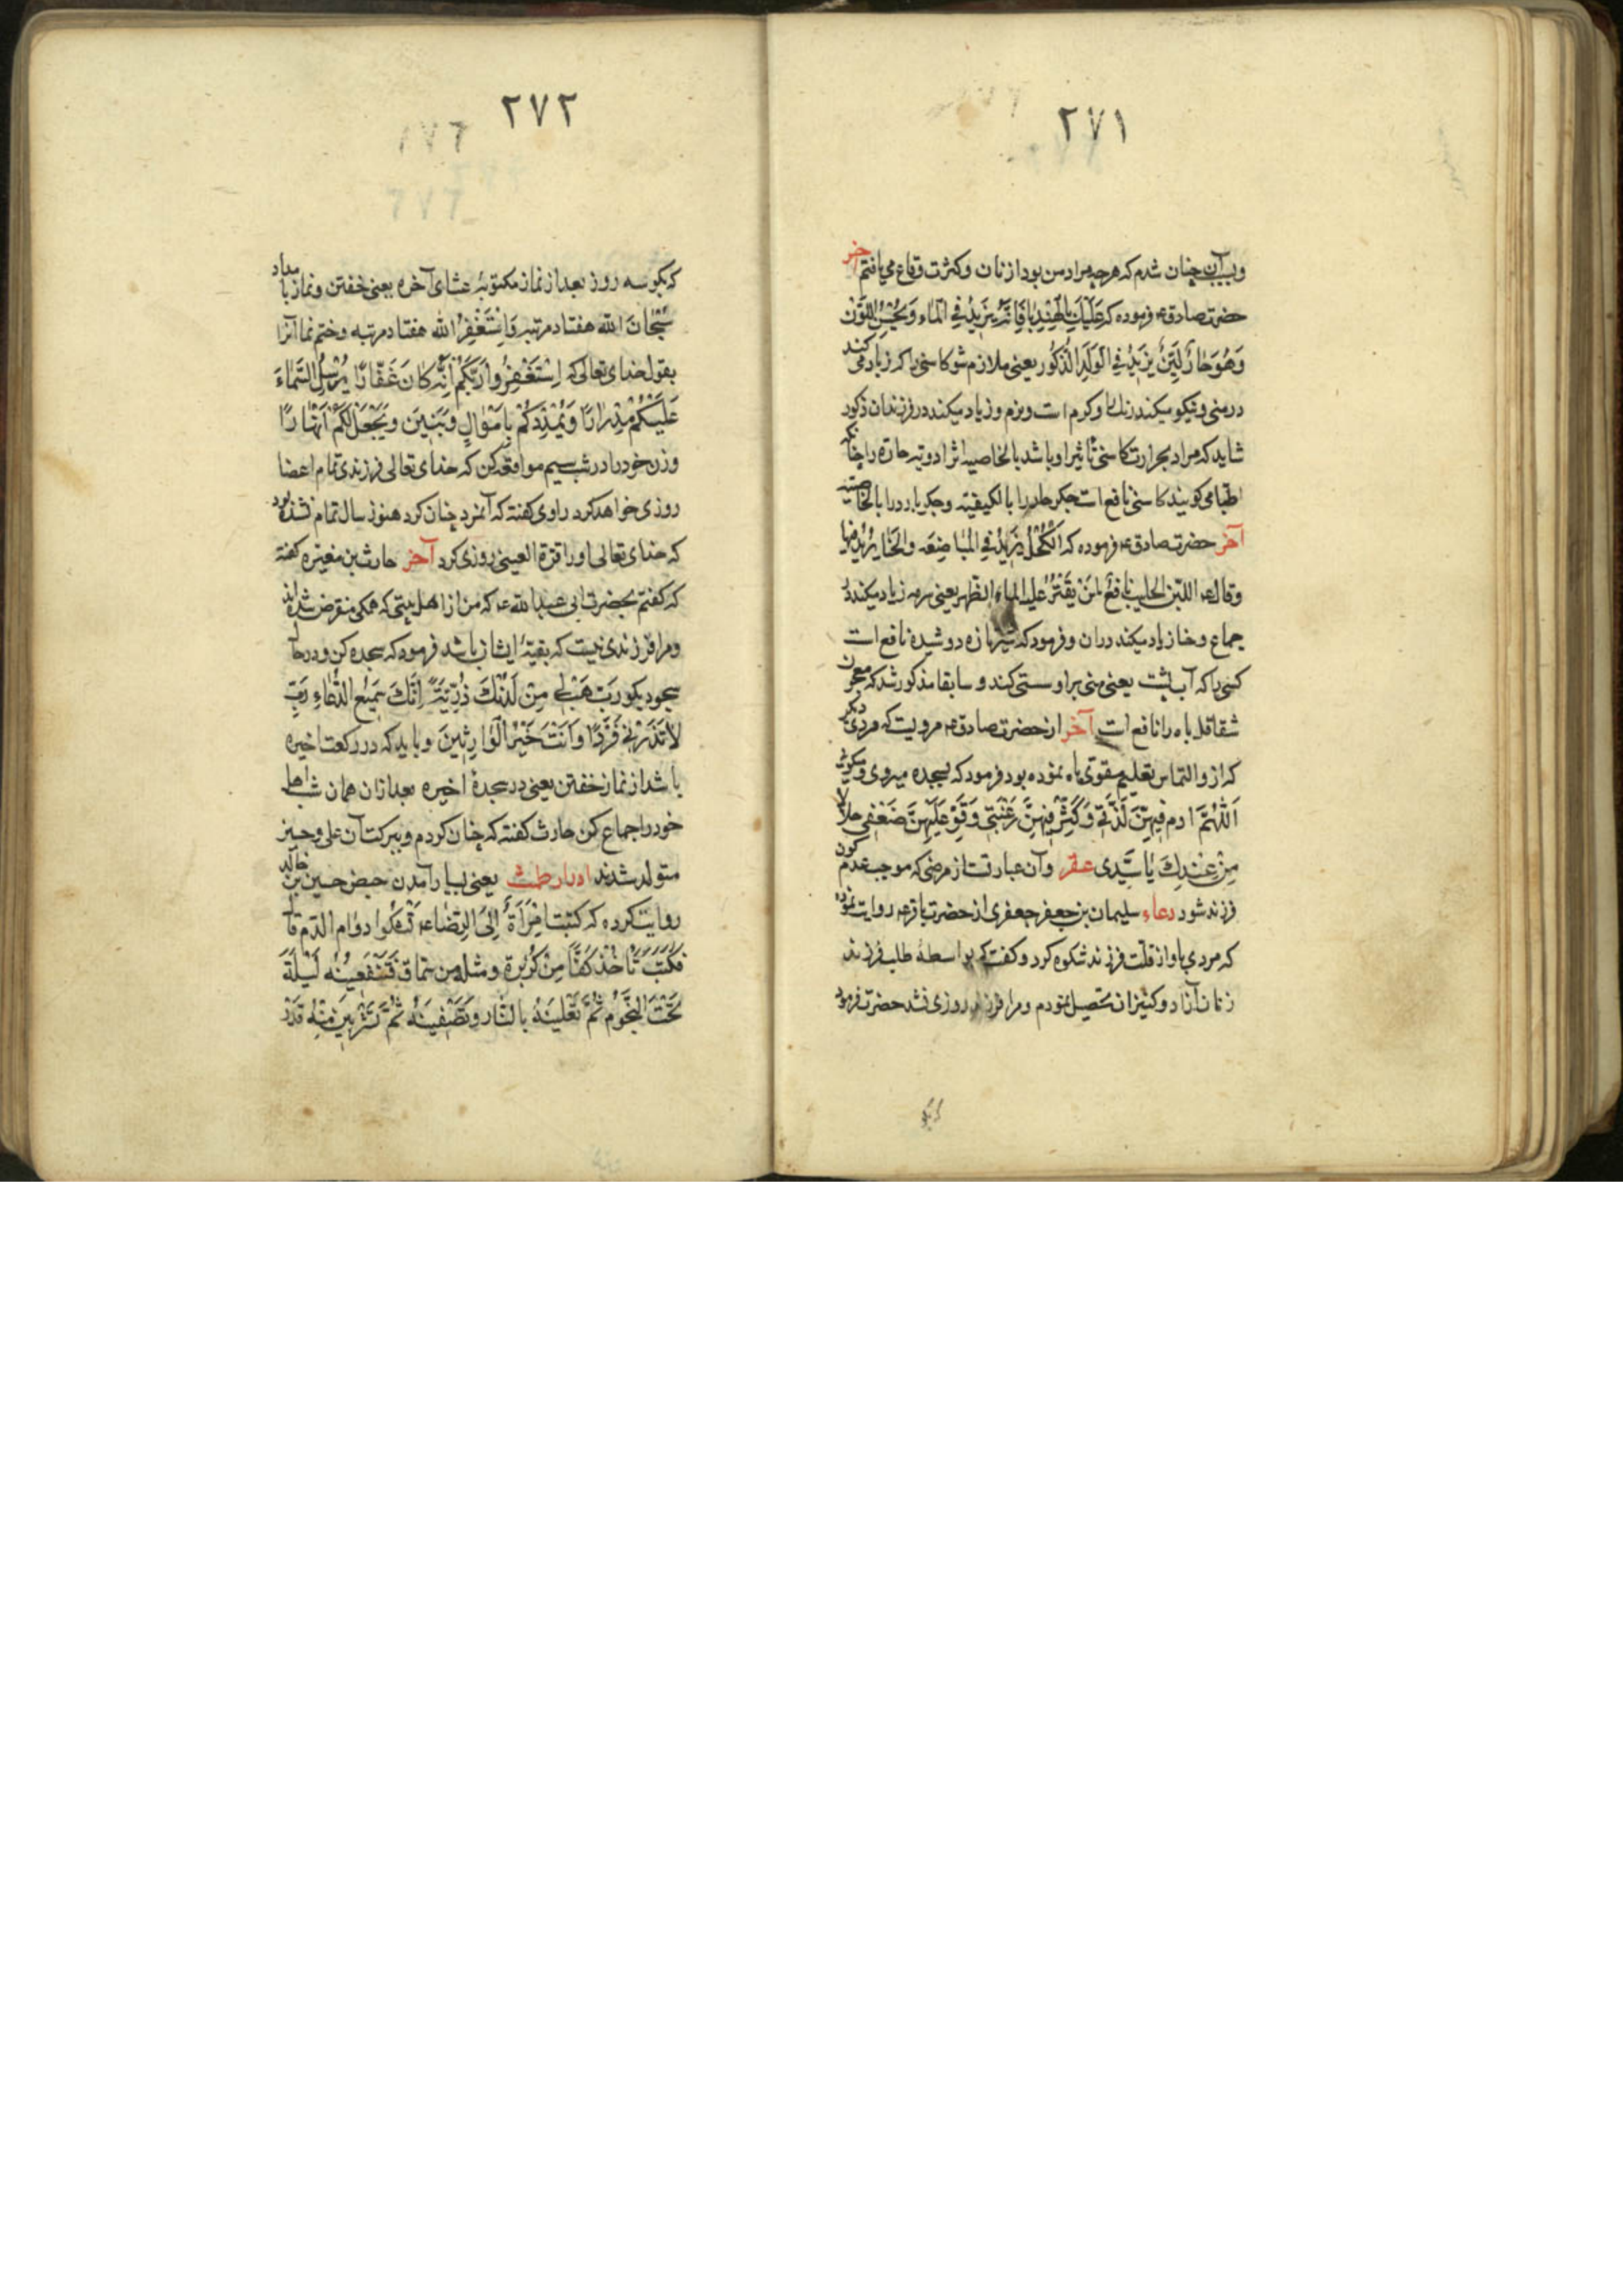 ۲۷۱
و بسبب آن چنان شدم که هرچه مراد من بود از زنان و کثرت وقاع می یافتم آخر
حضرت صادق ع فرموده که عَلَیْکَ بِالْهِنْدِبا فَاِنَّهُ یَزیدُ فِی الْماءِ وَ یُحْسِنُ اللَّوْنَ
وَ هُوَ حارٌّ لَیِّنٌ یَزیدُ فِی الْوَلَدِ الذُّکُور یعنی ملازم شو کاسنی را که زیاد می کند
در منی و نیکو میکند رنک را و کرم است و نرم و زیاد میکند در فرزندان ذکور
شاید که مراد بحرارت کاسنی تأثیر او باشد بالخاصیه اثر ادویه حاره را چنانکه
اطبا می کویند کاسنی نافع است جکر حار را بالکیفیته و جکر بارد را بالخاصیته
آخر حضرت صادق ع فرموده که اَلْکُحْلُ یَزیدُ فِی الْمُباضِعَه وَالْحَنّا یَزیدُ فیها
و قال ع اللبَن الحلیب نافِعٌ لِمَنْ یَفْتُرُ عَلَیهِ الماء الظهر یعنی سرمه زیاد میکند در
جماع و حنا زیاد میکند در آن و فرمود که شیر تازه دوشیده نافع است
کسی را که آب پشت یعنی منی بر او سستی کند و سابقا مذکور شد که معجون
شقاقل باه را نافع است آخر از حضرت صادق ع مرویست که مردی دیکر
که از و التماس تعلیم مقوی باه نموده بود فرمود که بسجده میروی و میکوئی
اَللّهُمَّ ادم فیهِنَّ لَذَّتی وَ کَثِّرْ فیهِنَّ رَغْبَتی وَ قَوِّ عَلَیْهِنَّ ضَعْفی حلالاً
مِنْ عِنْدِکَ یا سَیِّدی عقر و آن عبارتست از مرضی که موجب عدم کون
فرزند شود دعاء سلیمان بن جعفر جعفری از حضرت باقر ع روایت نموده
که مردی باو از قلت فرزند شکوه کرد و کفت که بواسطهٔ طلب فرزند
زنان آزاد و کنیزان تحصیل نمودم و مرا فرزند روزی نشد حضرت فرمود
که بکو
۲۷۲
که بکو سه روز بعد از نماز مکتوبهٔ عشای آخره یعنی خفتن و نماز بامداد
سُبْحانَ اللّه هفتاد مرتبه وَاَسْتَغْفِرُ اللّه هفتاد مرتبه و ختم نما آنرا
بقول خدای تعالی که اِسْتَغْفِرُوا رَبَّکُمْ اِنَّهُ کانَ غَفّارًا یُرْسِلِ السَّماءَ
عَلَیْکُمْ مِدْرارًا وَ یُمْدِدْکُمْ بِاَمْوالٍ وَ بَنینَ وَ یَجْعَلْ لَکُمْ اَنْهارًا
و زن خود را در شب سیم مواقعه کن که خدای تعالی فرزندی تمام اعضا
روزی خواهد کرد راوی کفته که آنمرد چنان کرد هنوز سال تمام نشده بود
که خدای تعالی او را قرة العینی روزی کرد آخر حارث بن مغیره کفته
که کفتم بحضرت ابی عبدالله ع که من از اهل بیتی که همکی منقرض شده اند
و مرا فرزندی نیست که بقیهٔ ایشان باشد فرمود که سجده کن و در حال
سجود بکو رَبِّ هَبْ لی مِنْ لَدُنْکَ ذُرِّیَّةً اِنَّکَ سَمیعُ الدُّعاءِ رَبِّ
لا تَذَرْنی فَرْدًا وَ اَنْتَ خَیْرُ الْوارِثینَ و باید که در رکعت اخیره
باشد از نماز خفتن یعنی در سجدهٔ اخیره بعد از آن همان شب اهل
خود را جماع کن حارث کفته که چنان کردم و ببرکت آن علی و حسین
متولد شدند ادرار طمث یعنی بسیار آمدن حیض حسین بن خالد
روایت کرده که کتبت امْرَأَةٌ اِلَی الرِّضا ع تَشْکُوا دوام الدّم قال
فَکَتَبَ تَأْخُذ کَفًّا مِنْ کُزْبُرة و مثله من سماق فَتَنْقَعینُه لَیْلَةً
تَحْتَ النُّجُوم ثُمَّ تَغْلینَهُ بالنّار وَ تُصَفّینَهُ ثُمَّ تَشْرَبینَ مِنْهُ قَدْرَ